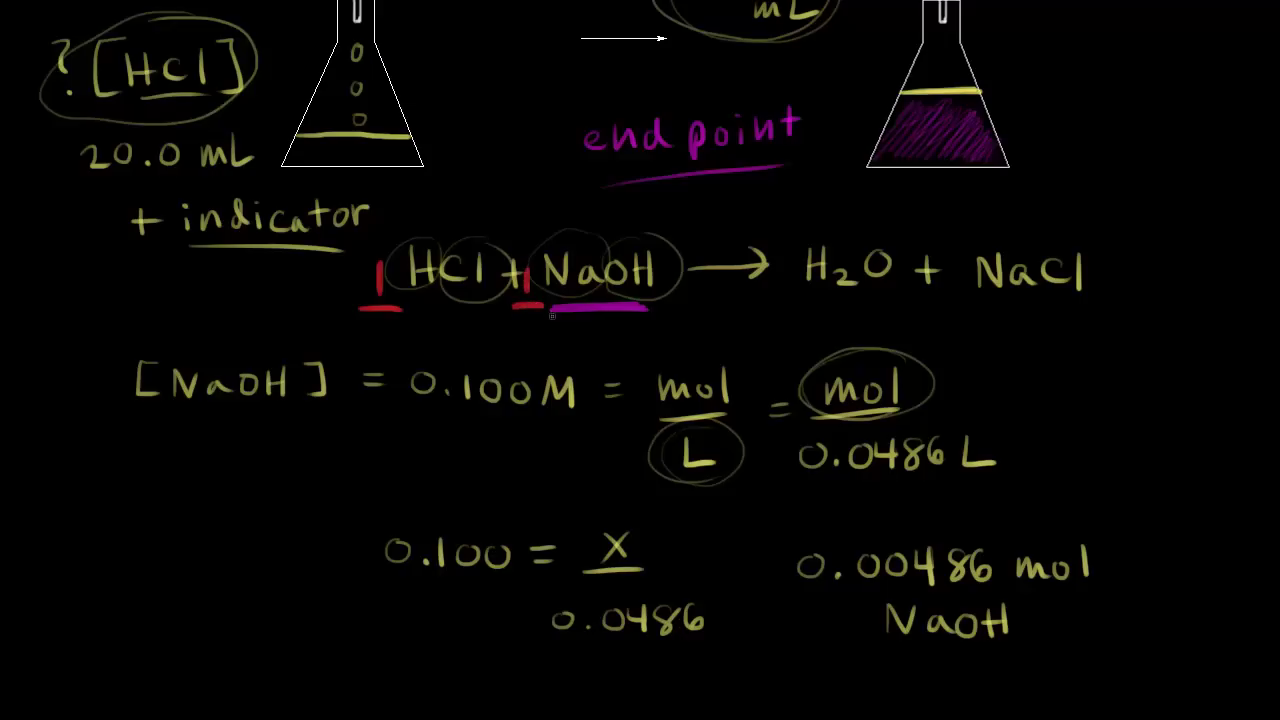 mL
? [HCl]
20.0 mL
+ indicator
end point
1 HCl + 1 NaOH → H₂O + NaCl
[NaOH] = 0.100 M = mol / L = mol / 0.0486 L
0.100 = X / 0.0486
0.00486 mol
NaOH